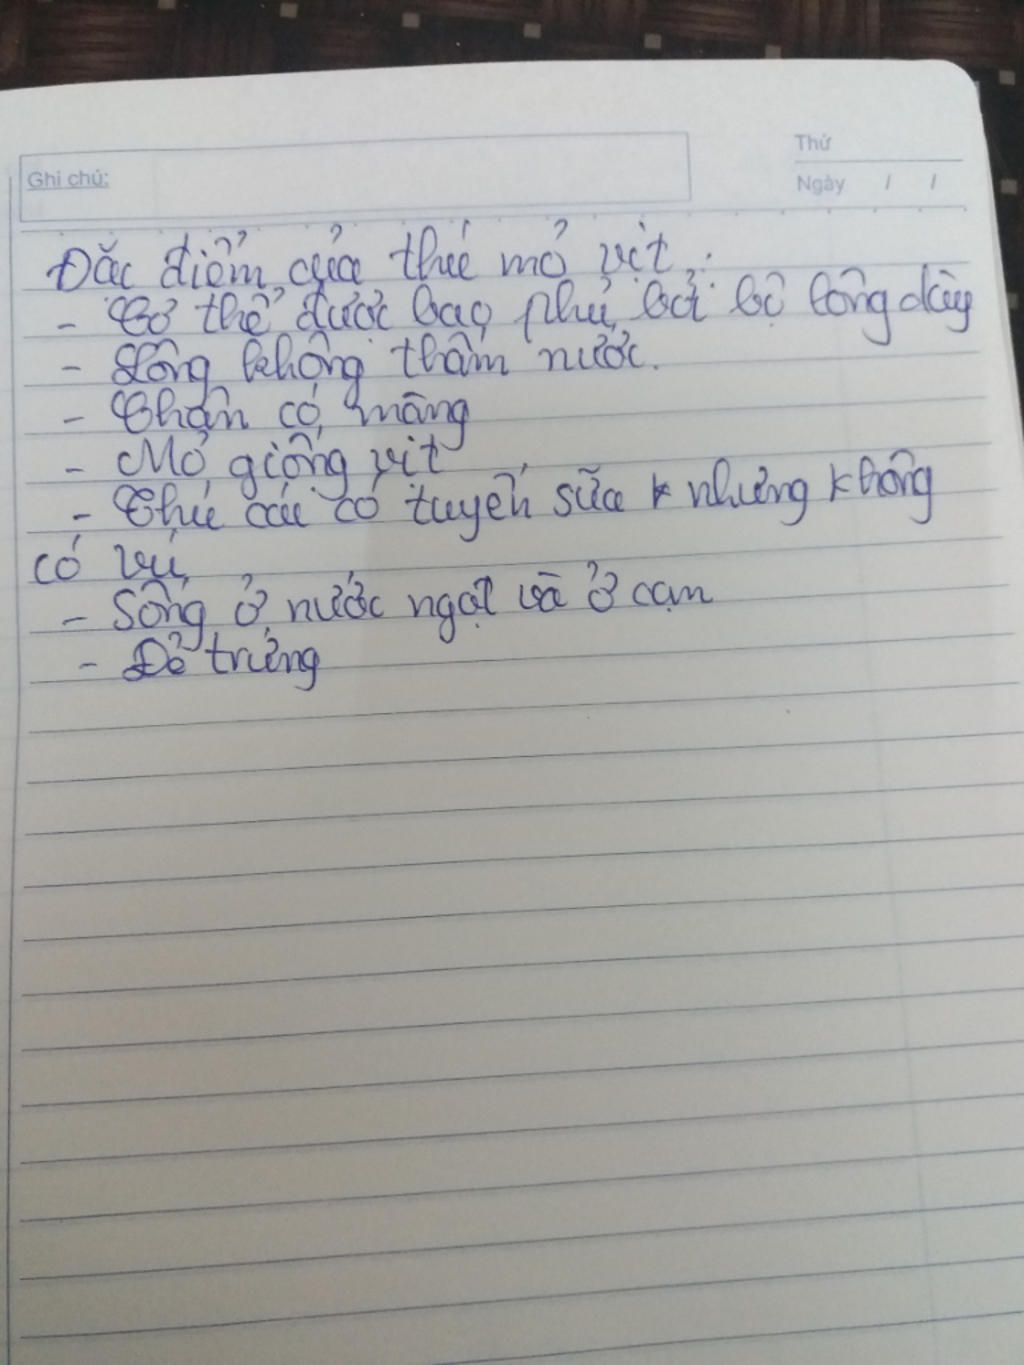 Ghi chú:
Thứ
Ngày / /
Đặc điểm của thú mỏ vịt :
- Cơ thể được bao phủ bởi bộ lông dày
- Lông không thấm nước.
- Chân có màng
- Mỏ giống vịt
- Thú cái có tuyến sữa k nhưng không
có vú
- Sống ở nước ngọt và ở cạn
- Đẻ trứng